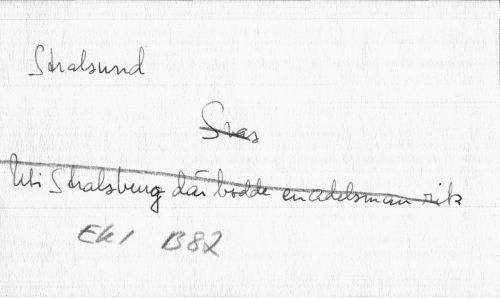 Stralsund
Sv​as
Uti Stralsburg där bodde en adelsman rik
EK 1 B82